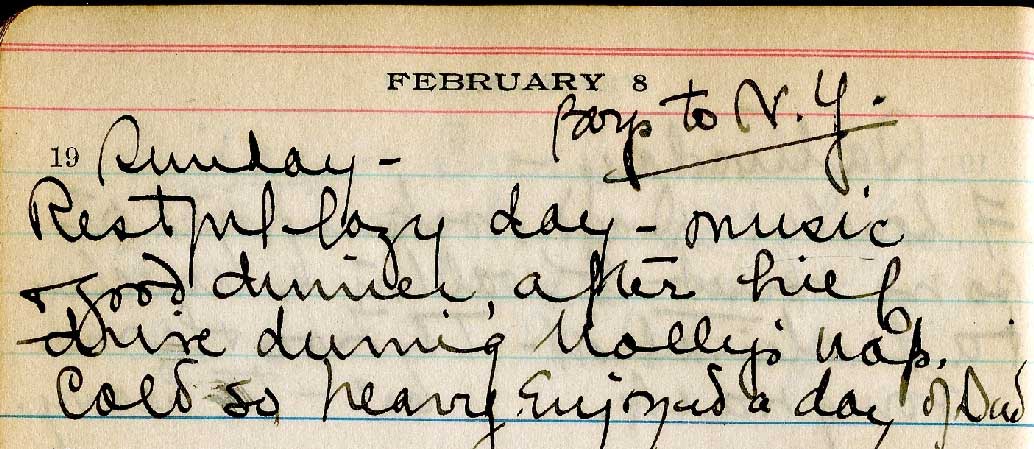 FEBRUARY 8
Boys to N.Y.
19 Sunday -
Restful lazy day - music
& good dinner, after brief
drive during Molly's nap.
Cold so heavy. Enjoyed a day of Dad